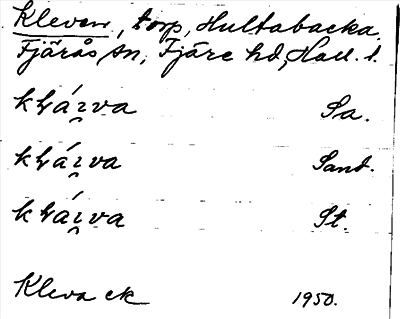 Kleven, torp, Hultabacka,
Fjärås sn, Fjäre hd, Hall. l.
kɫái̯va Sa.
kɫái̯va Sand.
kɫái̯va St.
Kleva ek 1950.